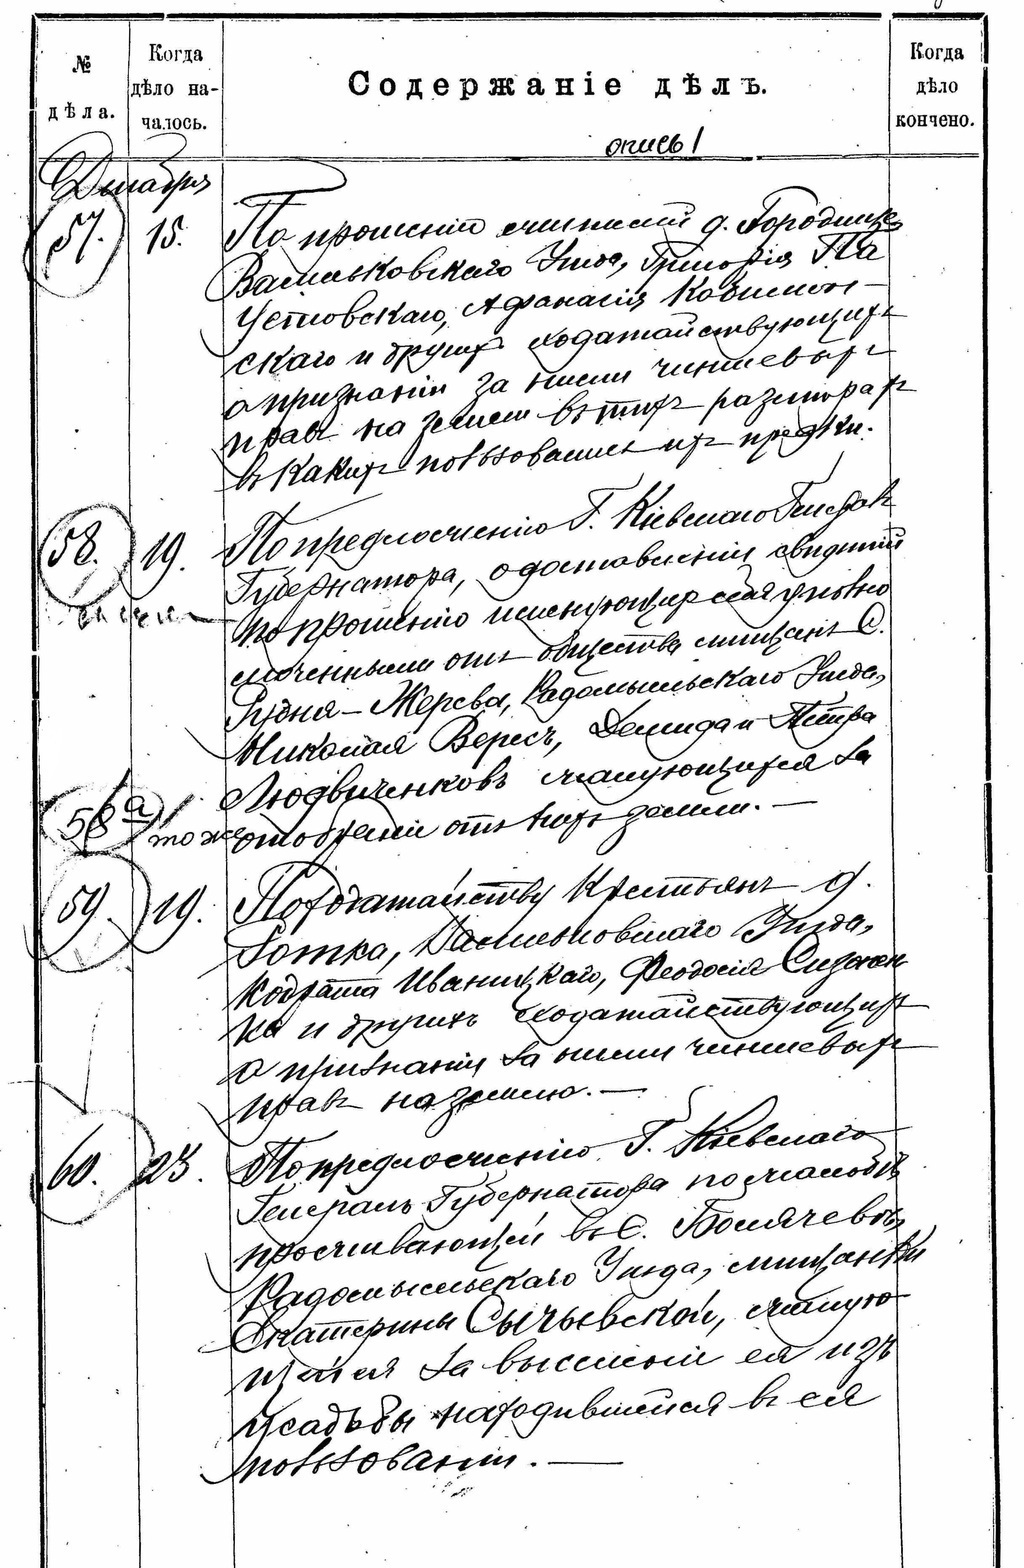 № дѣла.
Когда дѣло началось.
Содержаніе дѣлъ.
Когда дѣло кончено.
опись 1
Декабря
57. 15. По прошенію чиншевик д. Городище
Васильковскаго Уѣзда, Григорія Па
Устовскаго, Афанасія
скаго и другихъ ходатайствующихъ
о признаніи за ними чиншевыхъ
правъ на земли въ тѣхъ размѣрахъ
въ какихъ пользовались ихъ предки.
58. 19. По предложенію Г. Кіевскаго Генерал
Губернатора, о доставленіи свѣдѣній
по прошенію именующихъ себя уполно
моченными отъ общества мѣщанъ с.
Рудня-Жерева, Радомысльскаго Уѣзда,
Николая Вересъ, Демида и Петра
Людвиченковъ жалующихся за
58 а тоже отобраніе отъ нихъ земли. —
59. 19. По ходатайству крестьянъ д.
Ротка, Васильковскаго Уѣзда,
Кодрата Иваницкаго, Феодосія Сизонен
ка и другихъ ходатайствующихъ
о признаніи за ними чиншевыхъ
правъ на землю. —
60. 23. По предложенію Г. Кіевскаго
Генералъ Губернатора по жалобѣ
проживающей въ с. Болячевѣ,
Радомысльскаго Уѣзда, мѣщанки
Екатерины Сычъевской, жалую
щейся за выселеніе ея изъ
усадьбы находившейся въ ея
пользованіи. —